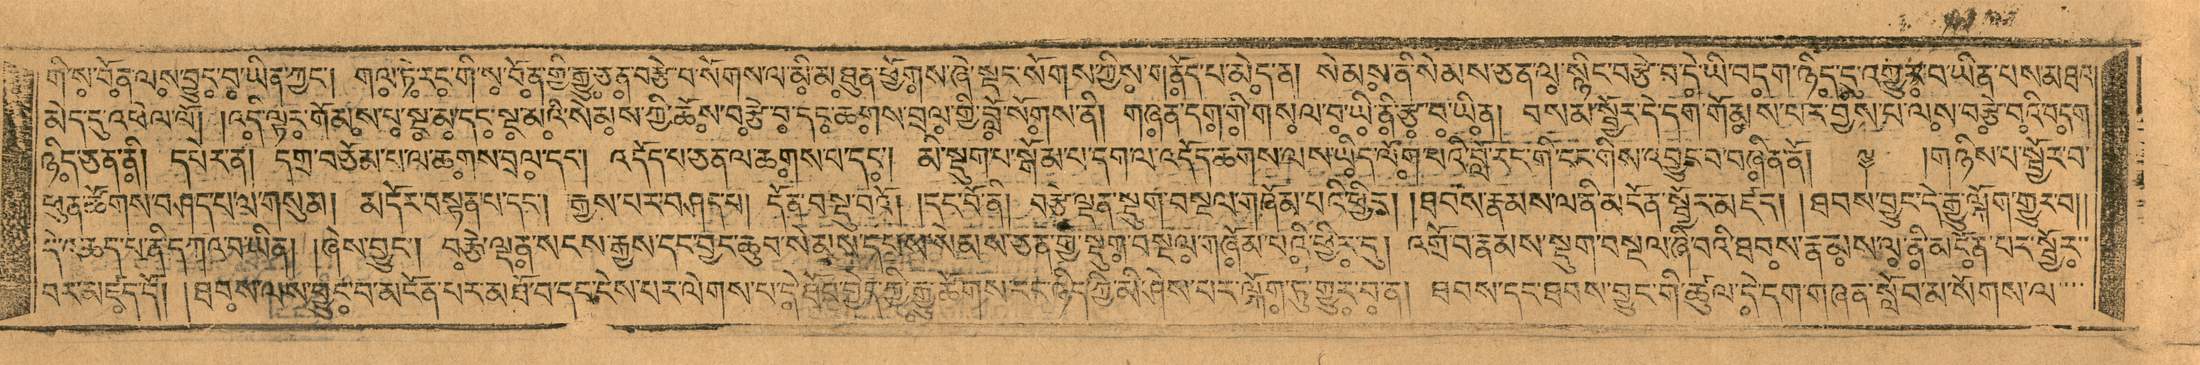 གི་ས་བོན་ལས་བྱུང་བ་ཡིན་ཀྱང་། གལ་ཏེ་རང་གི་ས་བོན་གྱི་རྒྱུ་ཅན་བརྩེ་བ་སོགས་ལ་མི་མཐུན་ཕྱོགས་ཞེ་སྡང་སོགས་ཀྱིས་གནོད་པ་མེད་ན། སེམས་ནི་སེམས་ཅན་ལ་སྙིང་བརྩེ་བ་དེ་ཡི་བདག་ཉིད་དུ་འགྱུར་བ་ཡིན་པས་མཐའ་
མེད་དུ་འཕེལ་ལོ། །འདི་ལྟར་གོམས་པ་སྔ་མ་དང་སྔ་མའི་སེམས་ཀྱི་ཆོས་བརྩེ་བ་དང་ཆགས་བྲལ་གྱི་བློ་སོགས་ནི། གཞན་དག་གི་གསལ་བ་ཡི་ནི་རྩ་བ་ཡིན། བས་མ་སྦྱོར་དེ་དག་གོམས་པར་བྱས་པ་ལས་བརྩེ་བའི་བདག་
ཉིད་ཅན་ནི། དཔེར་ན། དགྲ་བཅོམ་པ་ལ་ཆགས་བྲལ་དང་། འདོད་པ་ཅན་ལ་ཆགས་པ་དང་། མི་སྡུག་པ་སྒོམ་པ་དག་ལ་འདོད་ཆགས་ལས་ཡིད་ལོག་པའི་བློ་རང་གི་ངང་གིས་འབྱུང་བ་བཞིན་ནོ། །གཉིས་པ་སྦྱོར་བ་
ཕུན་ཚོགས་བཤད་པ་ལ་གསུམ། མདོར་བསྟན་པ་དང་། རྒྱས་པར་བཤད་པ། དོན་བསྡུ་བའོ། །དང་པོ་ནི། བརྩེ་ལྡན་སྡུག་བསྔལ་གཞོམ་པའི་ཕྱིར། །ཐབས་རྣམས་ལ་ནི་མངོན་སྦྱོར་མཛད། །ཐབས་བྱུང་དེ་རྒྱུ་ལྐོག་གྱུར་བ། །
དེ་འཆད་པ་ནི་དཀའ་བ་ཡིན། །ཞེས་བྱུང་། བརྩེ་ལྡན་སངས་རྒྱས་དང་བྱང་ཆུབ་སེམས་དཔས་སེམས་ཅན་གྱི་སྡུག་བསྔལ་གཞོམ་པའི་ཕྱིར་དུ། འགྲོ་བ་རྣམས་སྡུག་བསྔལ་ཞི་བའི་ཐབས་རྣམས་ལ་ནི་མངོན་པར་སྦྱོར་
བར་མཛད་དོ། །ཐབས་ལས་བྱུང་བ་མངོན་པར་མཐོ་བ་དང་ངེས་པར་ལེགས་པ་དེ་ རྒྱུ་ཚོགས་དང་ཉིད་ཀྱི་མི་ཤེས་པར་ལྐོག་ཏུ་གྱུར་བ་ན། ཐབས་དང་ཐབས་བྱུང་གི་ཚུལ་དེ་དག་གཞན་སློབ་མ་སོགས་ལ་